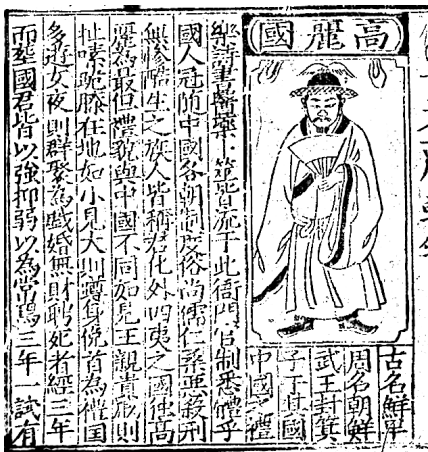 高麗國
古名鮮卑
周名朝鮮
武王封箕
子于其國
中國之禮
樂詩書醫藥卜筮皆流于此衙門官制悉體乎
國人冠隨中國各朝制度俗尚儒仁柔惡殺刑
無慘酷生之族人皆稱若化外四夷之國惟高
麗為最但禮貌與中國不同如見王親貴戚則
扯嗉跪膝在地如小見大則蹲身俛首為禮国
多遊女夜則群聚為戲婚無財聘死者經三年
而塟國君皆以強抑弱以為常焉三年一試有